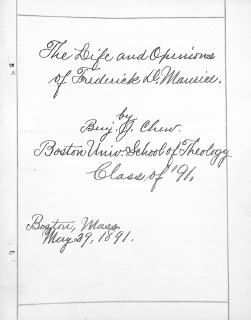 The Life and Opinions
of Frederick D. Maurice.
by
Benj. J. Chew.
Boston Univ. School of Theology
Class of '91.
Boston, Mass.
May 29, 1891.